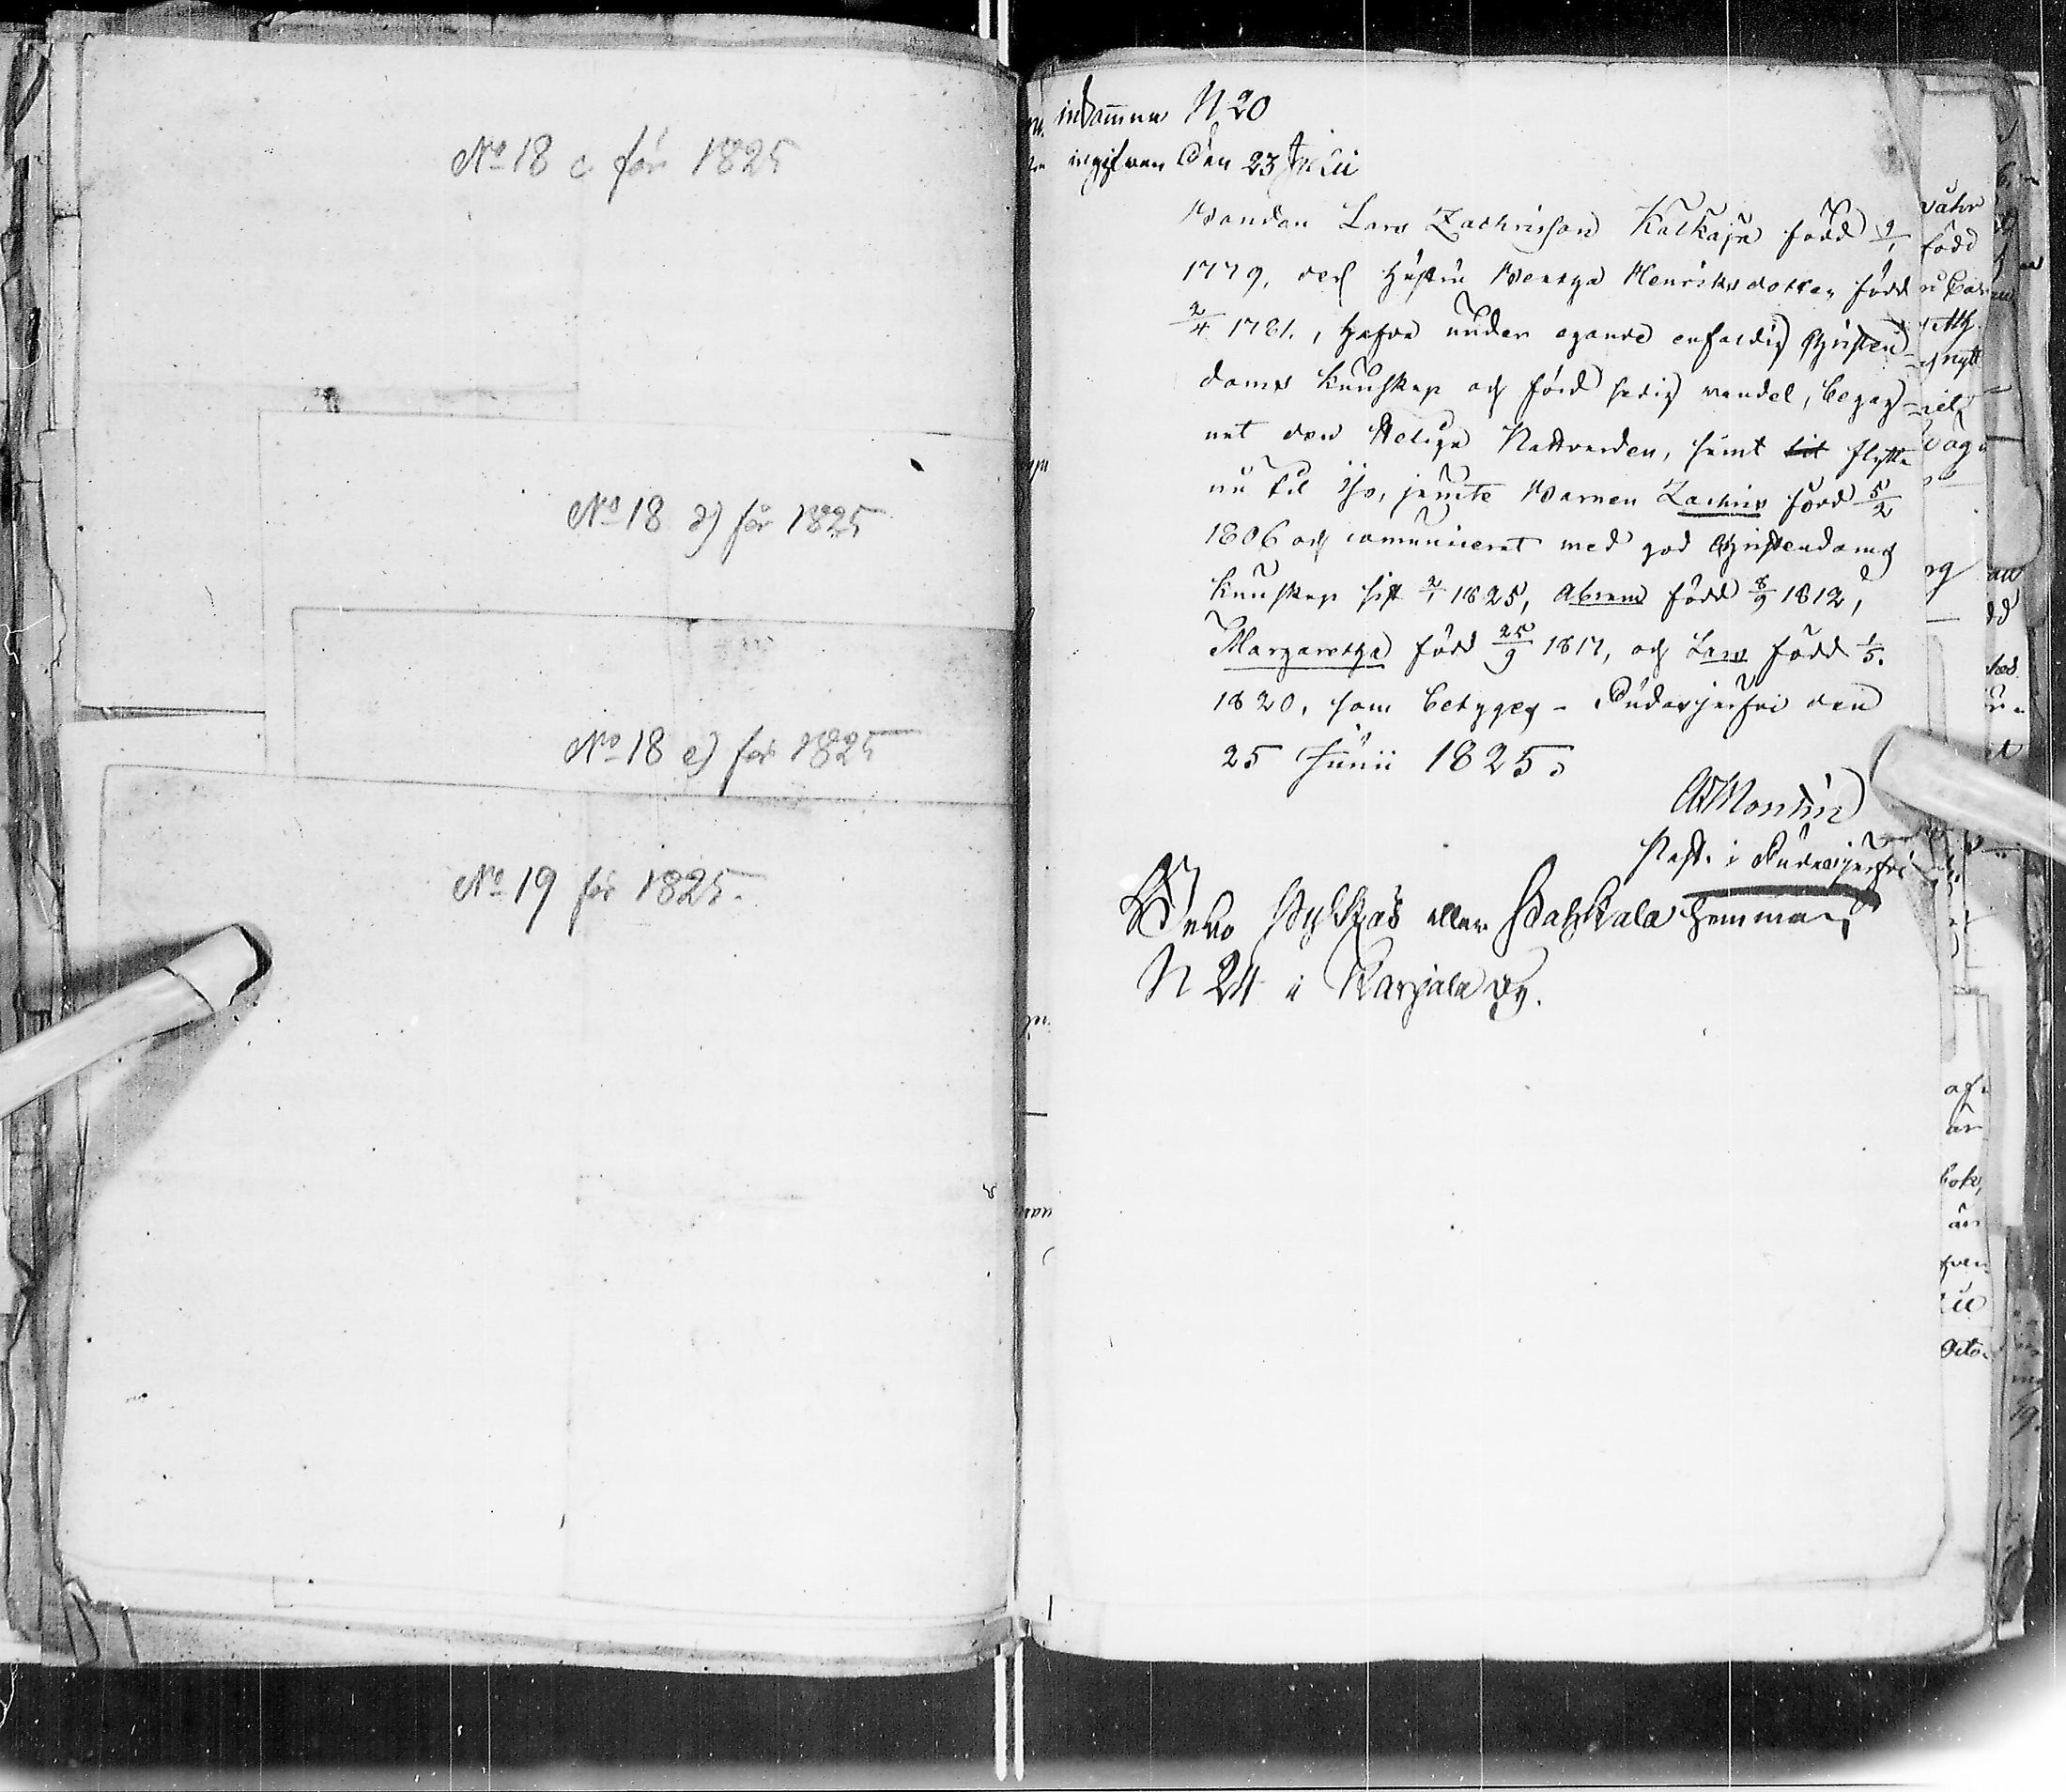 No 18 c för 1825
No 18 d) för 1825
No 18 e) för 1825
No 19 för 1825.
inkomna N 20
ingifven den 23 Julii
Bonden Lars Zachrisson Kalkaja född 9/1
1779, och hustru Bretha Henriksdotter född
2/4 1781., hafva under egande enfaldig Christen-
doms kunskap och förd sedig vandel, begag-
nat den Heliga Nattvarden, samt flytta
nu til Ijo, jemte Barnen Zachris född 5/2
1806 och comunicerat med god Christendoms
kunskap sist 2/1 1825, Abram född 8/9 1812,
Margaretha född 25/9 1817, och Lars född 1/5.
1820, som betyges - Pudasjerfvi den
25 Junii 1825.
Montin
Past. i Pudasjerfvi
eller hemman
N 24 i Karjala by.